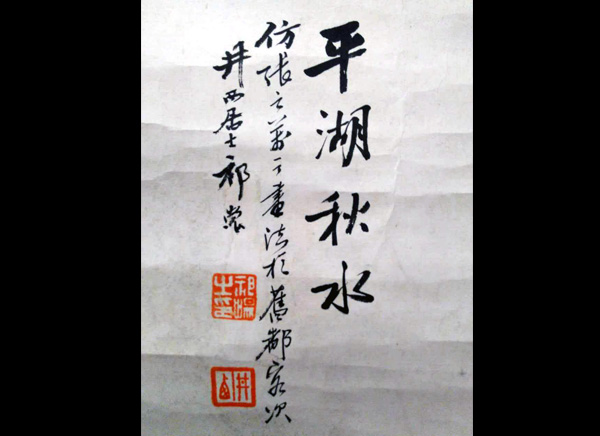 平湖秋水
仿張之萬畫法於舊都客次
井西居士祁
祁
之印
井西